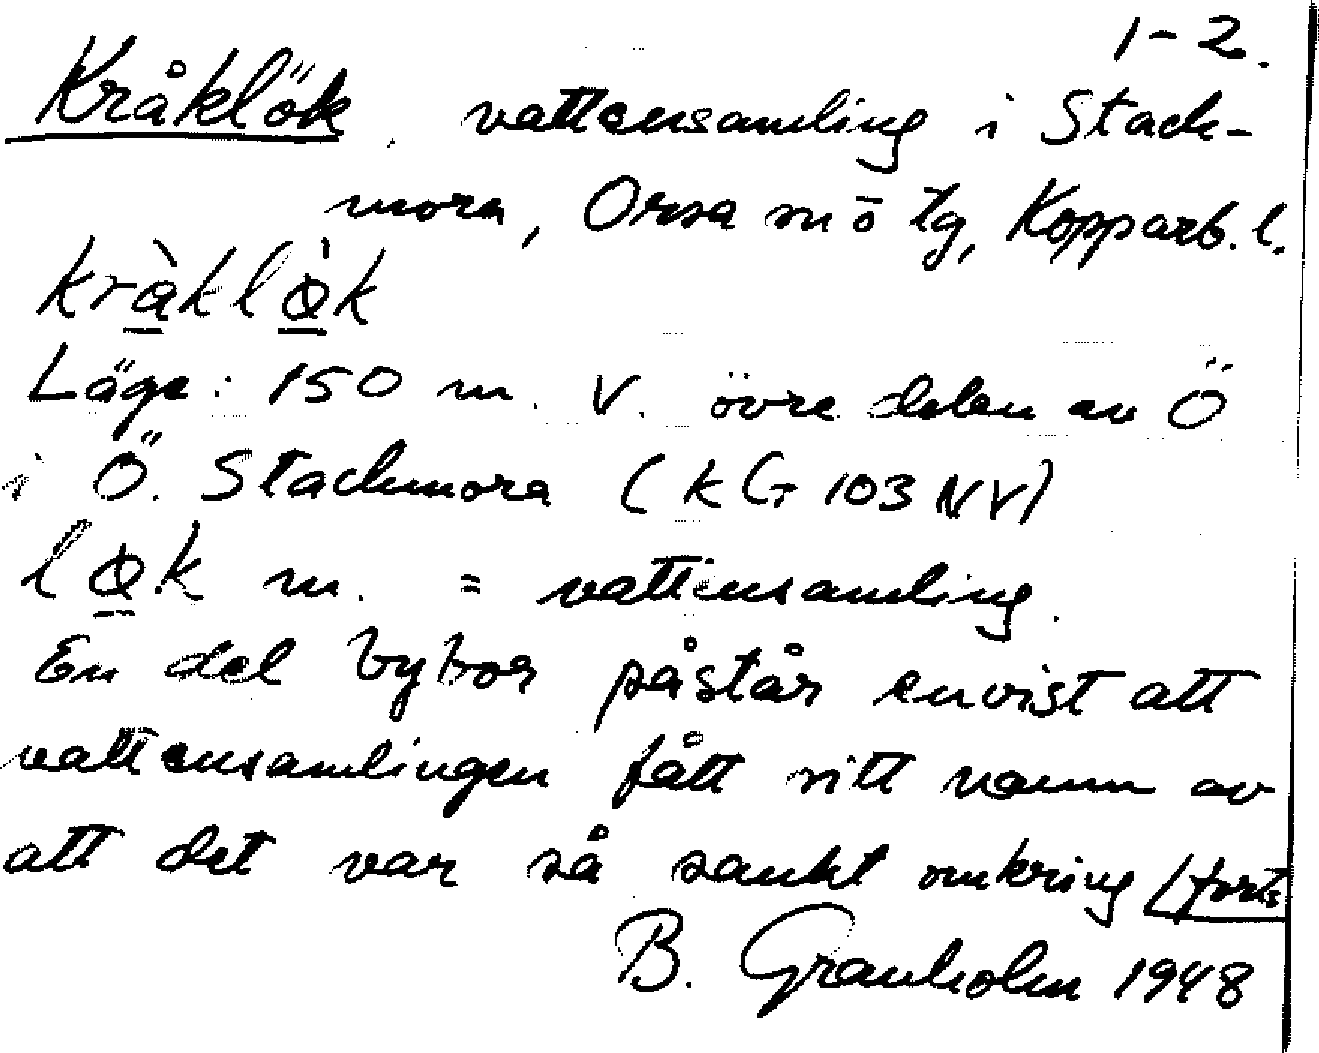 1-2.
Kråklök. vattensamling i Stack-
mora, Orsa sn ö tg, Kopparb. l.
kràklø̀k
Läge: 150 m. V. övre delen av Ö
i Ö. Stackmora (kG 103 NV)
løk m. = vattensamling.
En del bybor påstår envist att
vattensamlingen fått sitt namn av
att det var så sankt omkring /forts
B. Granholm 1948